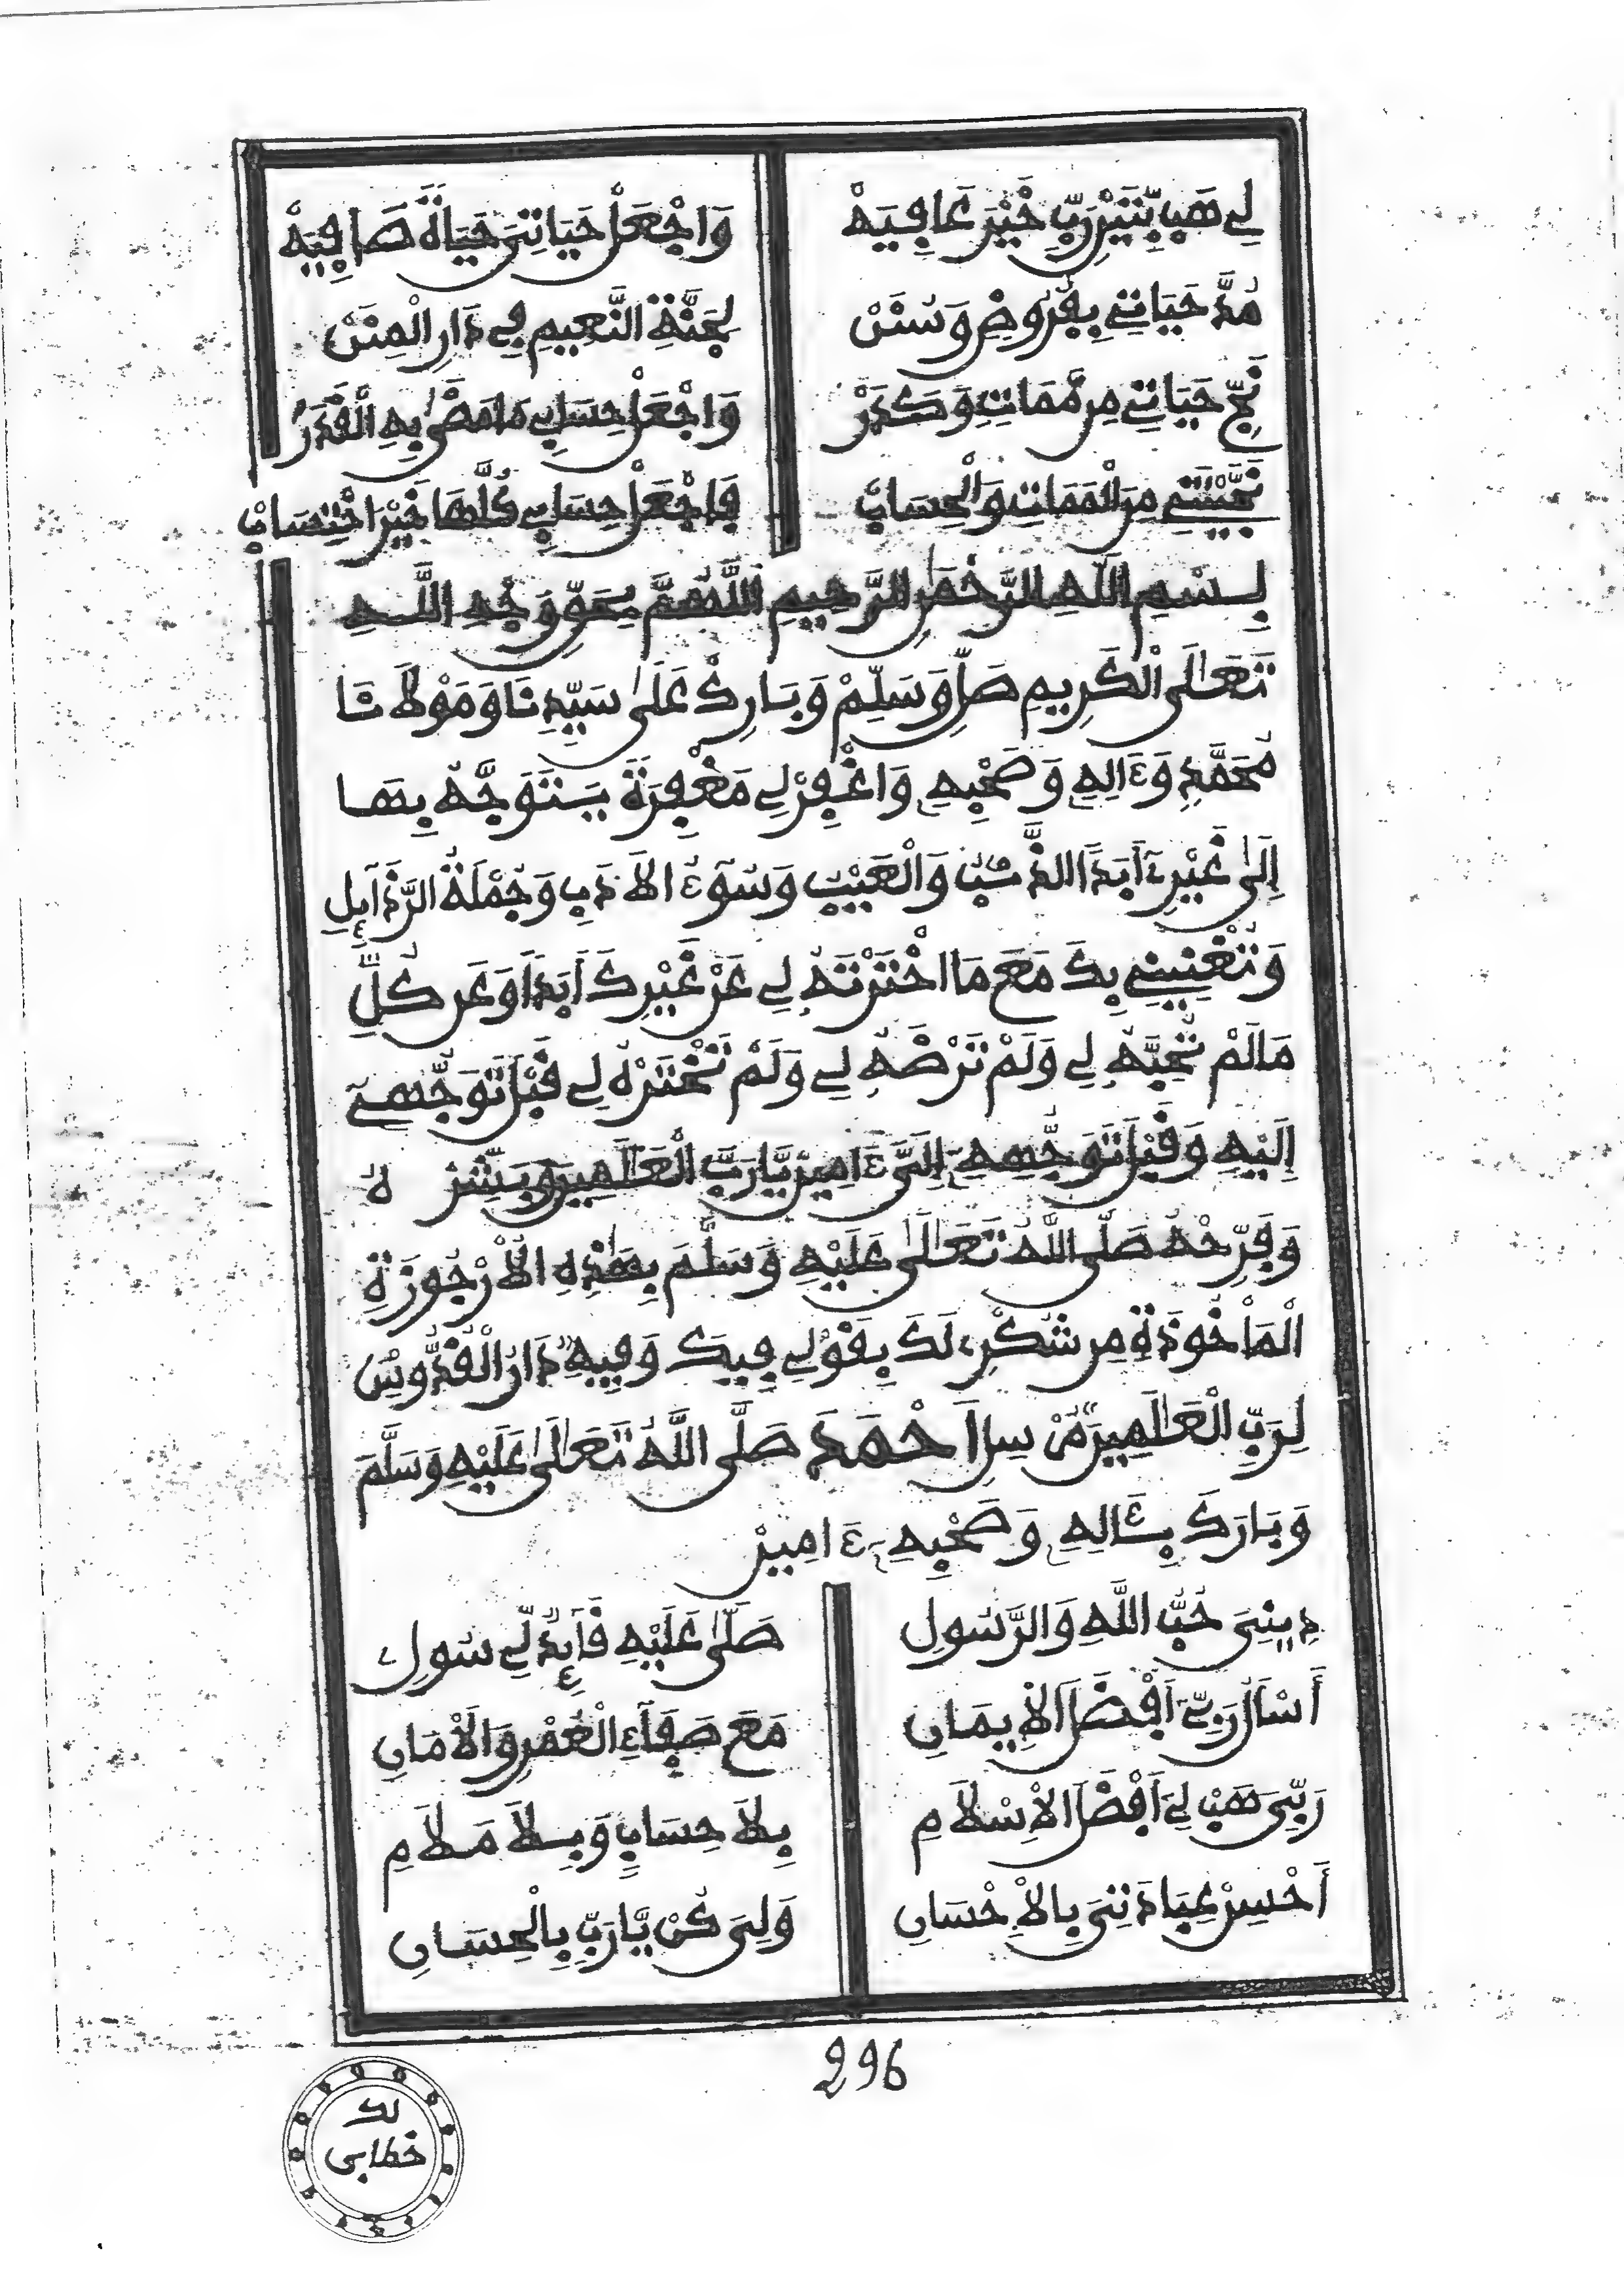 لِي هَبْ بِتَيْنِ رَبِّ خَيْرَ عَافِيَهْ وَاجْعَلْ حَيَاتِي حَيَاةً صَافِيَهْ
مُدَّ حَيَاتِي بِفُرُوضٍ وَسُنَنْ لِجَنَّةِ النَّعِيمِ فِي دَارِ الْمِنَنْ
نَجِّ حَيَاتِي مِن مَّمَاتِ وَكَدَرْ وَاجْعَلْ حِسَابِي مَا مَضَى بِهِ الْقَدَرْ
نَجَّيْتَنِي مِنَ الْمَمَاتِ وَالْحِسَابْ فَاجْعَلْ حِسَابِي كُلَّهَا خَيْرَ احْتِسَابْ
بِسْمِ اللَّهِ الرَّحْمَنِ الرَّحِيمِ اللَّهُمَّ بِحَقِّ وَجْهِ اللَّهِ
تَعَالَى الْكَرِيمِ صَلِّ وَسَلِّمْ وَبَارِكْ عَلَى سَيِّدِنَا وَمَوْلَانَا
مُحَمَّدٍ وَءَالِهِ وَصَحْبِهِ وَاغْفِرْ لِي مَغْفِرَةً يَتَوَجَّهُ بِهَا
إِلَى غَيْرِي أَبَدًا الذَّنْبُ وَالْعَيْبُ وَسُوءُ الْأَدَبِ وَجُمْلَةُ الرَّذَائِلِ
وَتُغْنِينِي بِكَ مَعَ مَا اخْتَرْتَهُ لِي عَنْ غَيْرِكَ أَبَدًا وَعَن كُلِّ
مَا لَمْ تُحِبَّهُ لِي وَلَمْ تَرْضَهُ لِي وَلَمْ تَخْتَرْهُ لِي قَبْلَ تَوَجُّهِي
إِلَيْهِ وَقَبْلَ تَوَجُّهِهِ إِلَيَّ ءَامِينَ يَّا رَبَّ الْعَالَمِينَ وَبَشِّرْهُ
وَفَرِّحْهُ صَلَّى اللَّهُ تَعَالَى عَلَيْهِ وَسَلَّمَ بِهَذِهِ الْأُرْجُوزَةِ
الْمَأْخُوذَةِ مِن شُكْرِي لَكَ بِقَوْلِي فِيكَ وَفِيهِ دَارُ الْقُدُّوسْ
لِرَبِّ الْعَالَمِينَ مِّنْ سِرِّ أَحْمَدَ صَلَّى اللَّهُ تَعَالَى عَلَيْهِ وَسَلَّمَ
وَبَارَكَ بِئَالِهِ وَصَحْبِهِ ءَامِينْ
دِينِيَ حُبُّ اللَّهِ وَالرَّسُولِ صَلَّى عَلَيْهِ قَائِدٌ لِّي سُولِي
أَسْأَلُ رَبِّي أَفْضَلَ الْإِيمَانِ مَعَ صَفَاءِ الْعُمْرِ وَالْأَمَانِ
رَبِّيَ هَبْ لِيَ أَفْضَلَ الْإِسْلَامِ بِلَا حِسَابٍ وَبِلَا مَلَامِ
أَحْسِنْ عِبَادَتِيَ بِالْإِحْسَانِ وَلِيَ كُنْ يَّا رَبِّ بِالْحِسَانِ
296
لك
خطابي